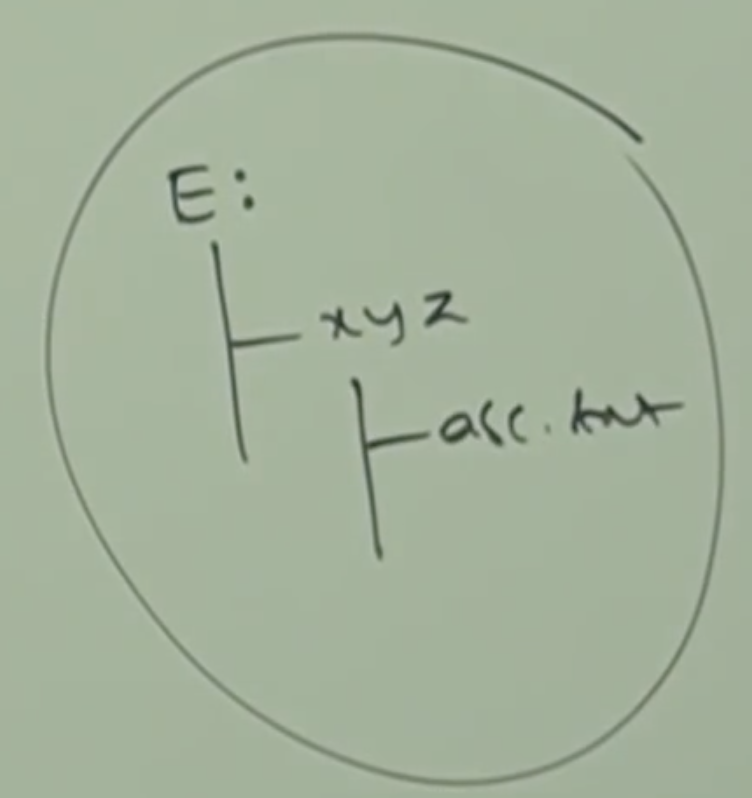 E:
xyz
asc.txt